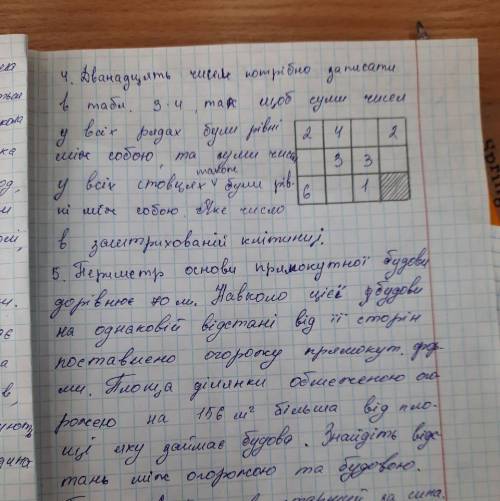 4. Дванадцять чисел потрібно записати
в табл. 3·4, так щоб суми чисел
у всіх рядах були рівні
між собою, та суми чисел
також
у всіх стовпцях були рів-
ні між собою. Яке число
в заштрихованій клітинці.
2 4 2
3 3
6 1
5. Периметр основи прямокутної будови
дорівнює 70 м. Навколо цієї будови
на однаковій відстані від її сторін
поставлено огорожу прямокут. фор-
ми. Площа ділянки обмеженою ого
рожею на 156 м² більша від пло-
щі яку займає будова. Знайдіть відс
тань між огорожою та будовою.